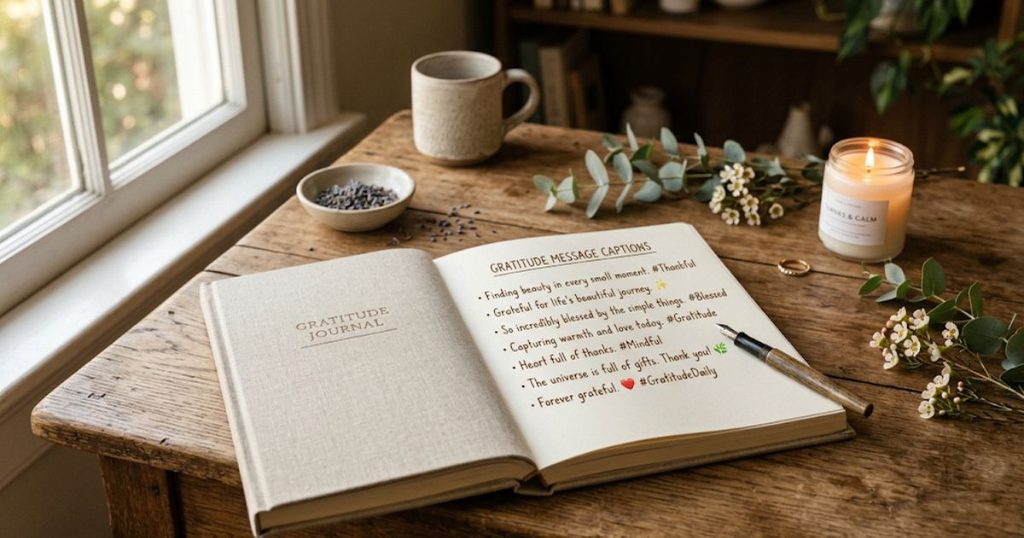 GRATITUDE
JOURNAL
GRATITUDE MESSAGE CAPTIONS
• Finding beauty in every small moment. #Thankful
• Grateful for life's beautiful journey. ✨
• So incredibly blessed by the simple things. #Blessed
• Capturing warmth and love today. #Gratitude
• Heart full of thanks. #Mindful
• The universe is full of gifts. Thank you! 🌿
• Forever grateful. ❤️ #GratitudeDaily
& CALM